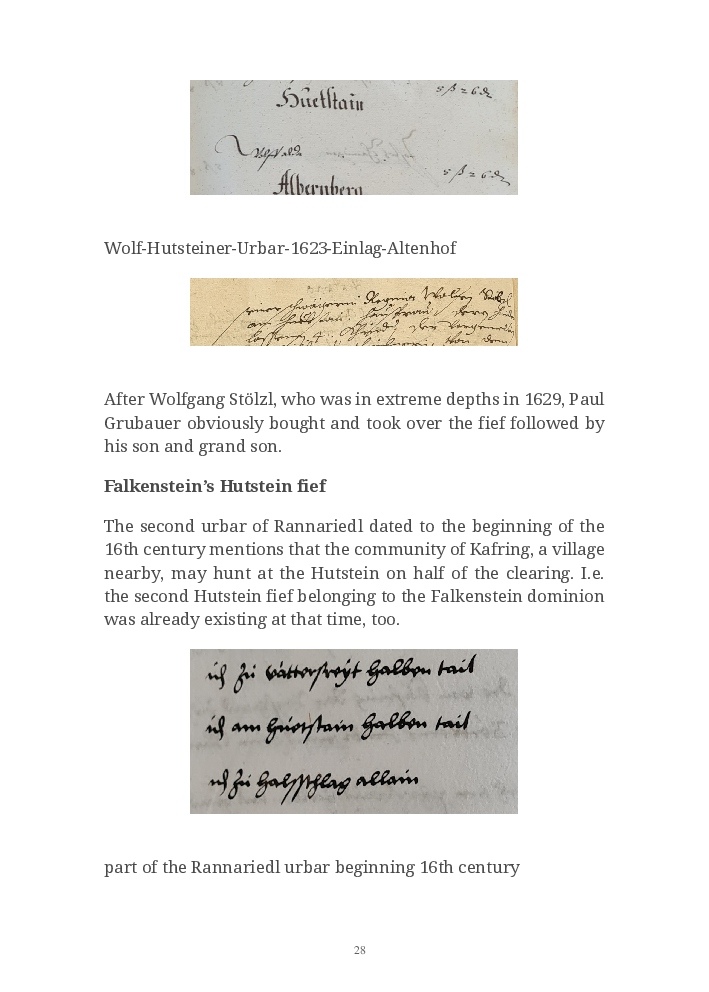 Huetstain
Albernberg
Wolf-Hutsteiner-Urbar-1623-Einlag-Altenhof
seiner schwägerin Regina
After Wolfgang Stölzl, who was in extreme depths in 1629, Paul
Grubauer obviously bought and took over the fief followed by
his son and grand son.
Falkenstein’s Hutstein fief
The second urbar of Rannariedl dated to the beginning of the
16th century mentions that the community of Kafring, a village
nearby, may hunt at the Hutstein on half of the clearing. I.e.
the second Hutstein fief belonging to the Falkenstein dominion
was already existing at that time, too.
ich zu halben tail
ich am huetstain halben tail
ich zu allain
part of the Rannariedl urbar beginning 16th century
28